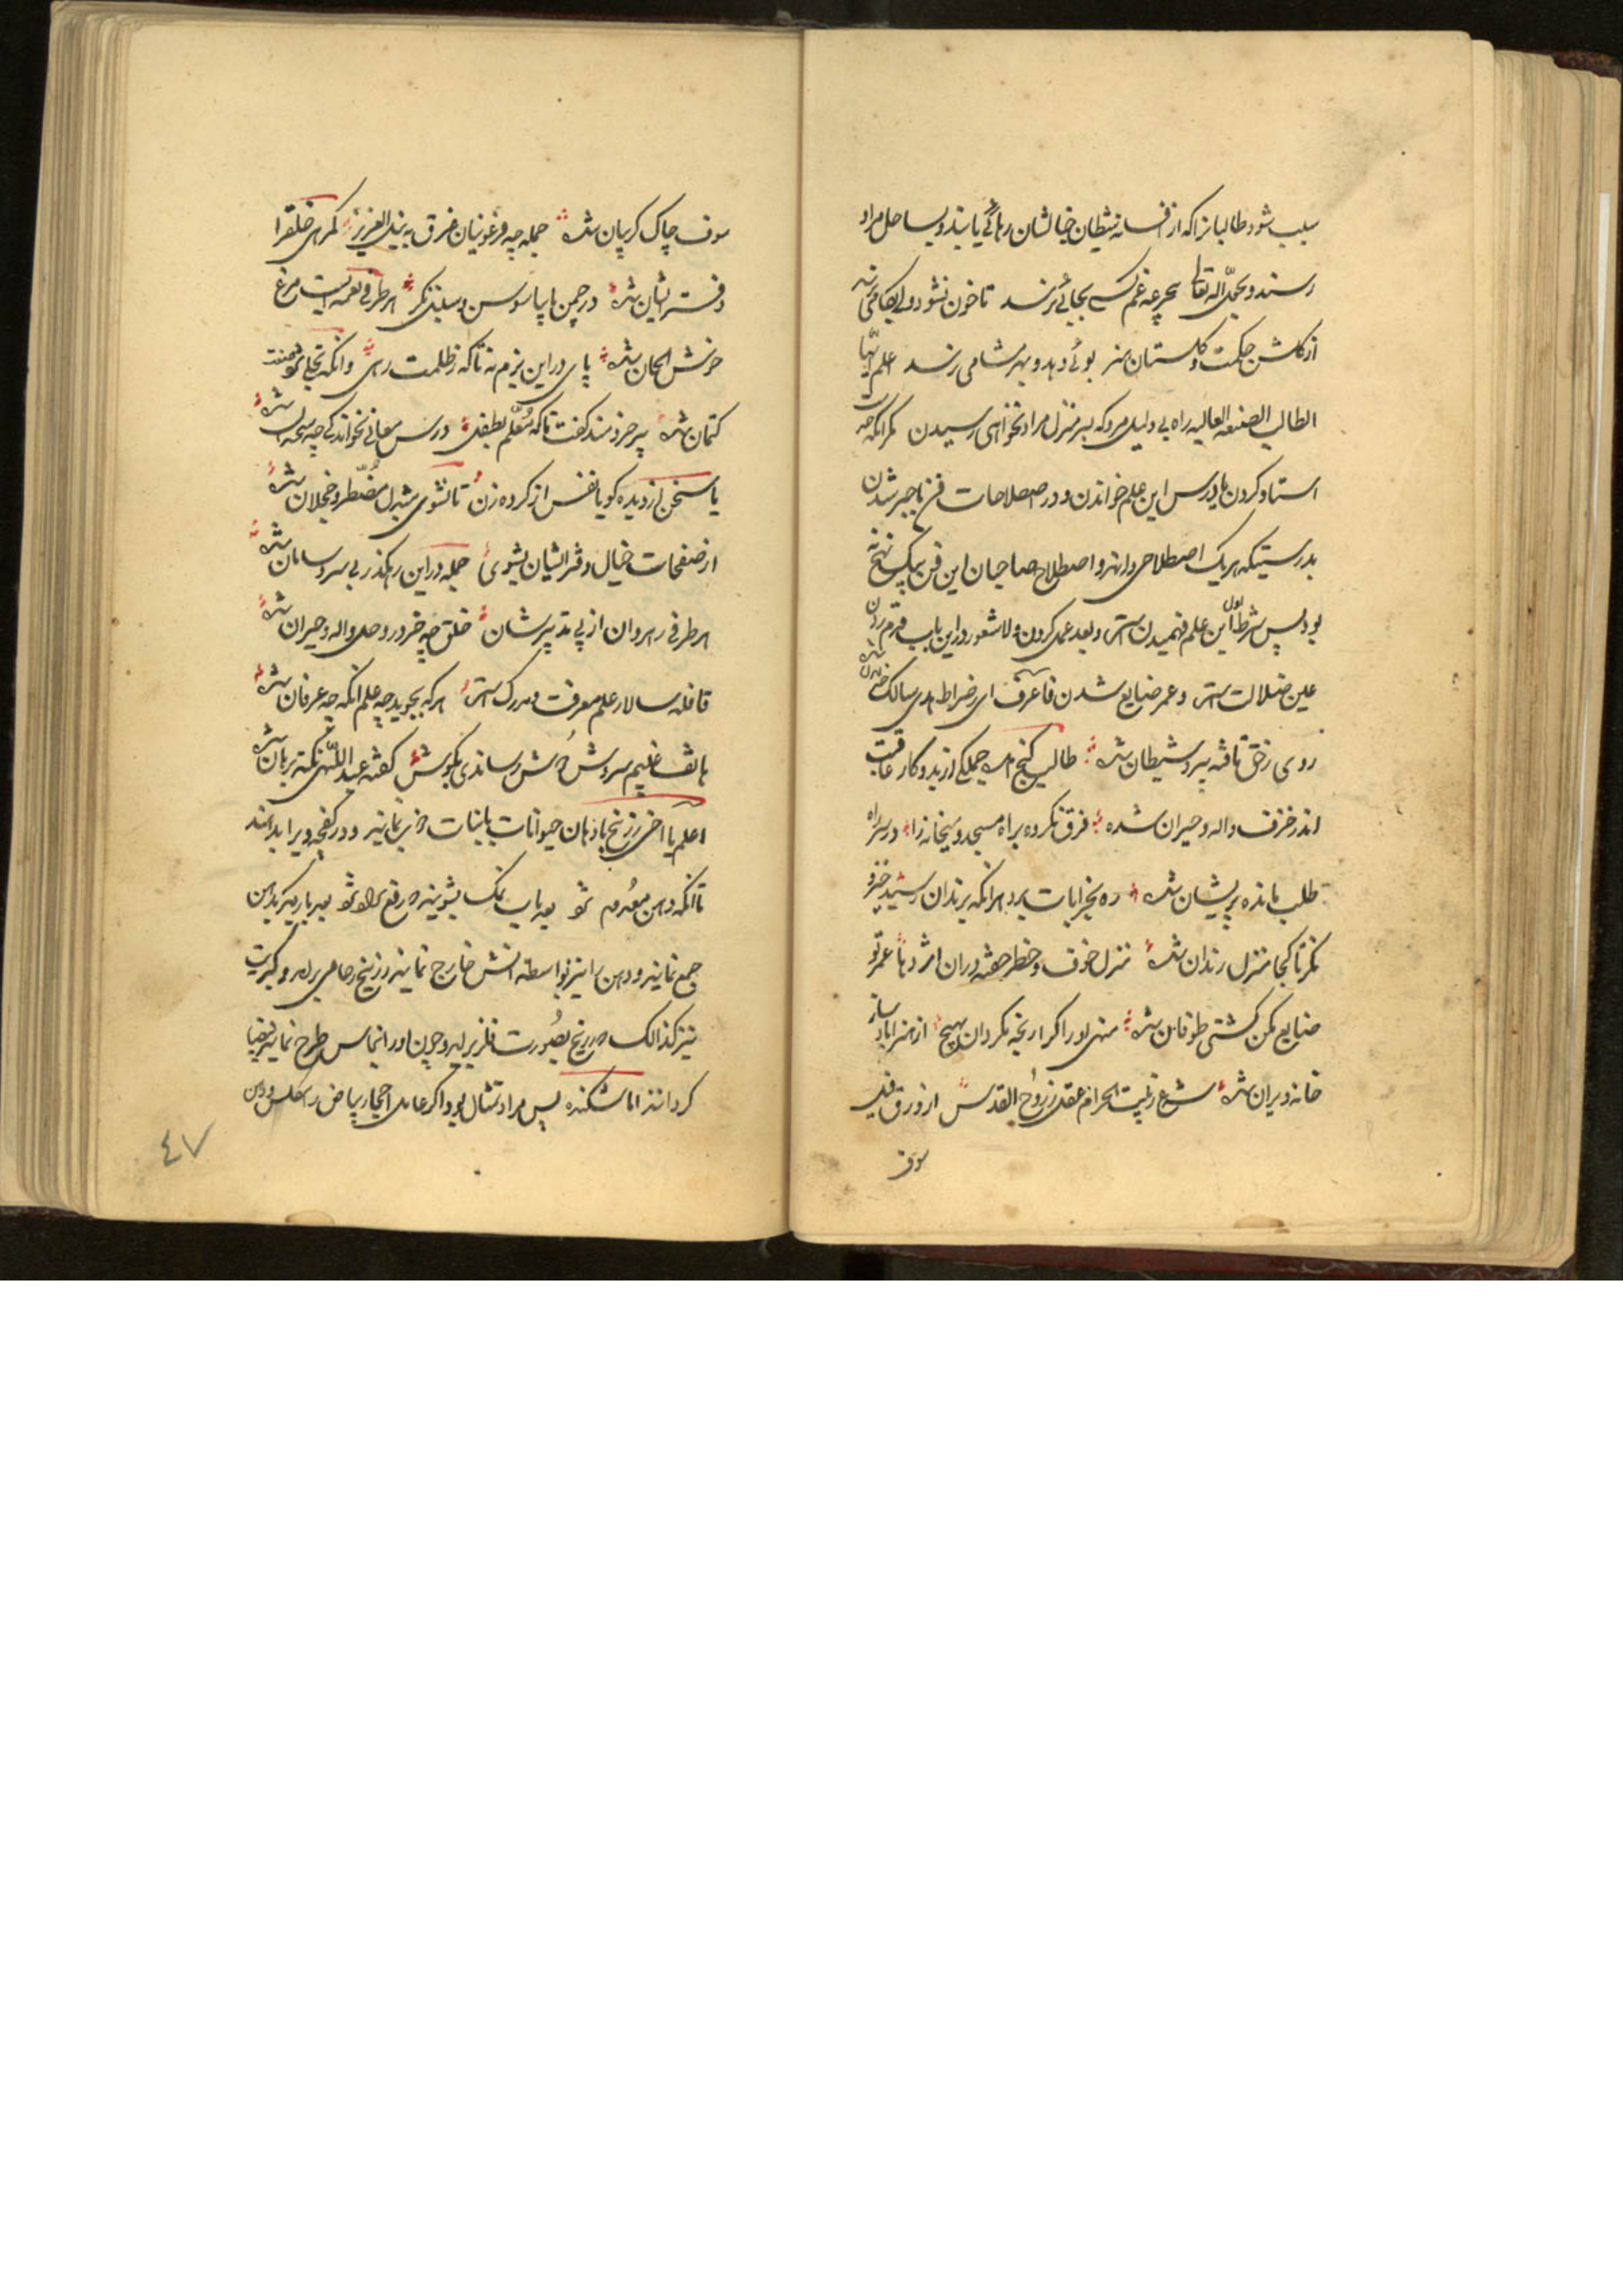 سبب شود طالبانرا که از افسانه شیطان خیالشان رهائی یابند و بساحل مراد
رسند و بحمد الله تعالی بجرعه غم کسی بجائی نرسد تا خون نشود
از گلشن حکمت و گلستان هنر بوئی دهد و بهر مشامی رسد اعلم ایها
الطالب الصنعه العالیه راه بی دلیل مرو که بسر منزل مراد نخواهی رسیدن مگر آنکه
استاد کردن یا درس این علم خواندن و در اصطلاحات فن با خبر شدن
بدرستیکه هر یک اصطلاحی دارند و اصطلاح صاحبان این فن بیک نهج نه
بود پس شرط اول این علم فهمیدن است و بعد عمل کردن و لا شعور در این باب قدم زدن
عین ضلالت است و عمر ضایع شدن فاعرف ای ز صراط هدی سالک
روی زحق تافته پیرو شیطان شده طالب گنج آمده جملگی از بد و کار عاقبت
اندر خزف واله و حیران شده فرق نکرده براه مسجد و میخانه را در سر راه
طلب مانده پریشان شده ره بخرابات برد هر آنکه برندان رسید
نگر تا کجا منزل رندان شده منزل خوف و خطر خفته در آن اژدها عمر تو
ضایع مکن کشتی طوفان شده
خانه ویران شده شمع ز بیت الحرام عقل ز روح القدس از ورق
سوف
سوف چاک گریبان شده جمله چه فرعونیان غرق به نیل العزیز گمرهی خلق را
دفتر ایشان شده در چمن ما بیا سوسن و سنبل نگر هر طرفی نغمه ایست مرغ
خوش الحان شده پای در این بزم نه تا که ز ظلمت رهی وانکه تجلی
کتمان شده پیر خردمند گفت تا که معلم بطفل درس معانی نخواند کی چه
یا سخن از دیده گو یا نفس از کرده زن تا نشوی مضطر و خجلان شده
از صفحات خیال دفتر ایشان بشوی جمله در این رهگذر بی سر و سامان شده
هر طرفی رهروان از پی تدبیر شان خلق چه خر در وحل واله و حیران شده
قافله سالار علم معرفت و مدرک است هر که بجوید چه علم آنکه چه عرفان شده
هاتف غیبم سروش دوش رساندی بگوش گفته عبد اللهی نکته برهان شده
اعلم یا اخی زرنیخ با دهان حیوانات یا نبات چرب نمایند و در کفچه ویرا بدانند
تا آنکه دهن معدوم شود بعد با آب نمک بشویند
جمع نمایند و دهن را نیز بواسطه آتش خارج نمایند و زرنیخ رصاصی بر آید و کبریت
نیز کذالک و زرنیخ بصورت فلز بر آید و چون او را بنحاس طرح نمایند بیضا
گردانند اما شکننده پس مراد تمثال بود اگر عامل احجار بیاض را کلس
٤٧